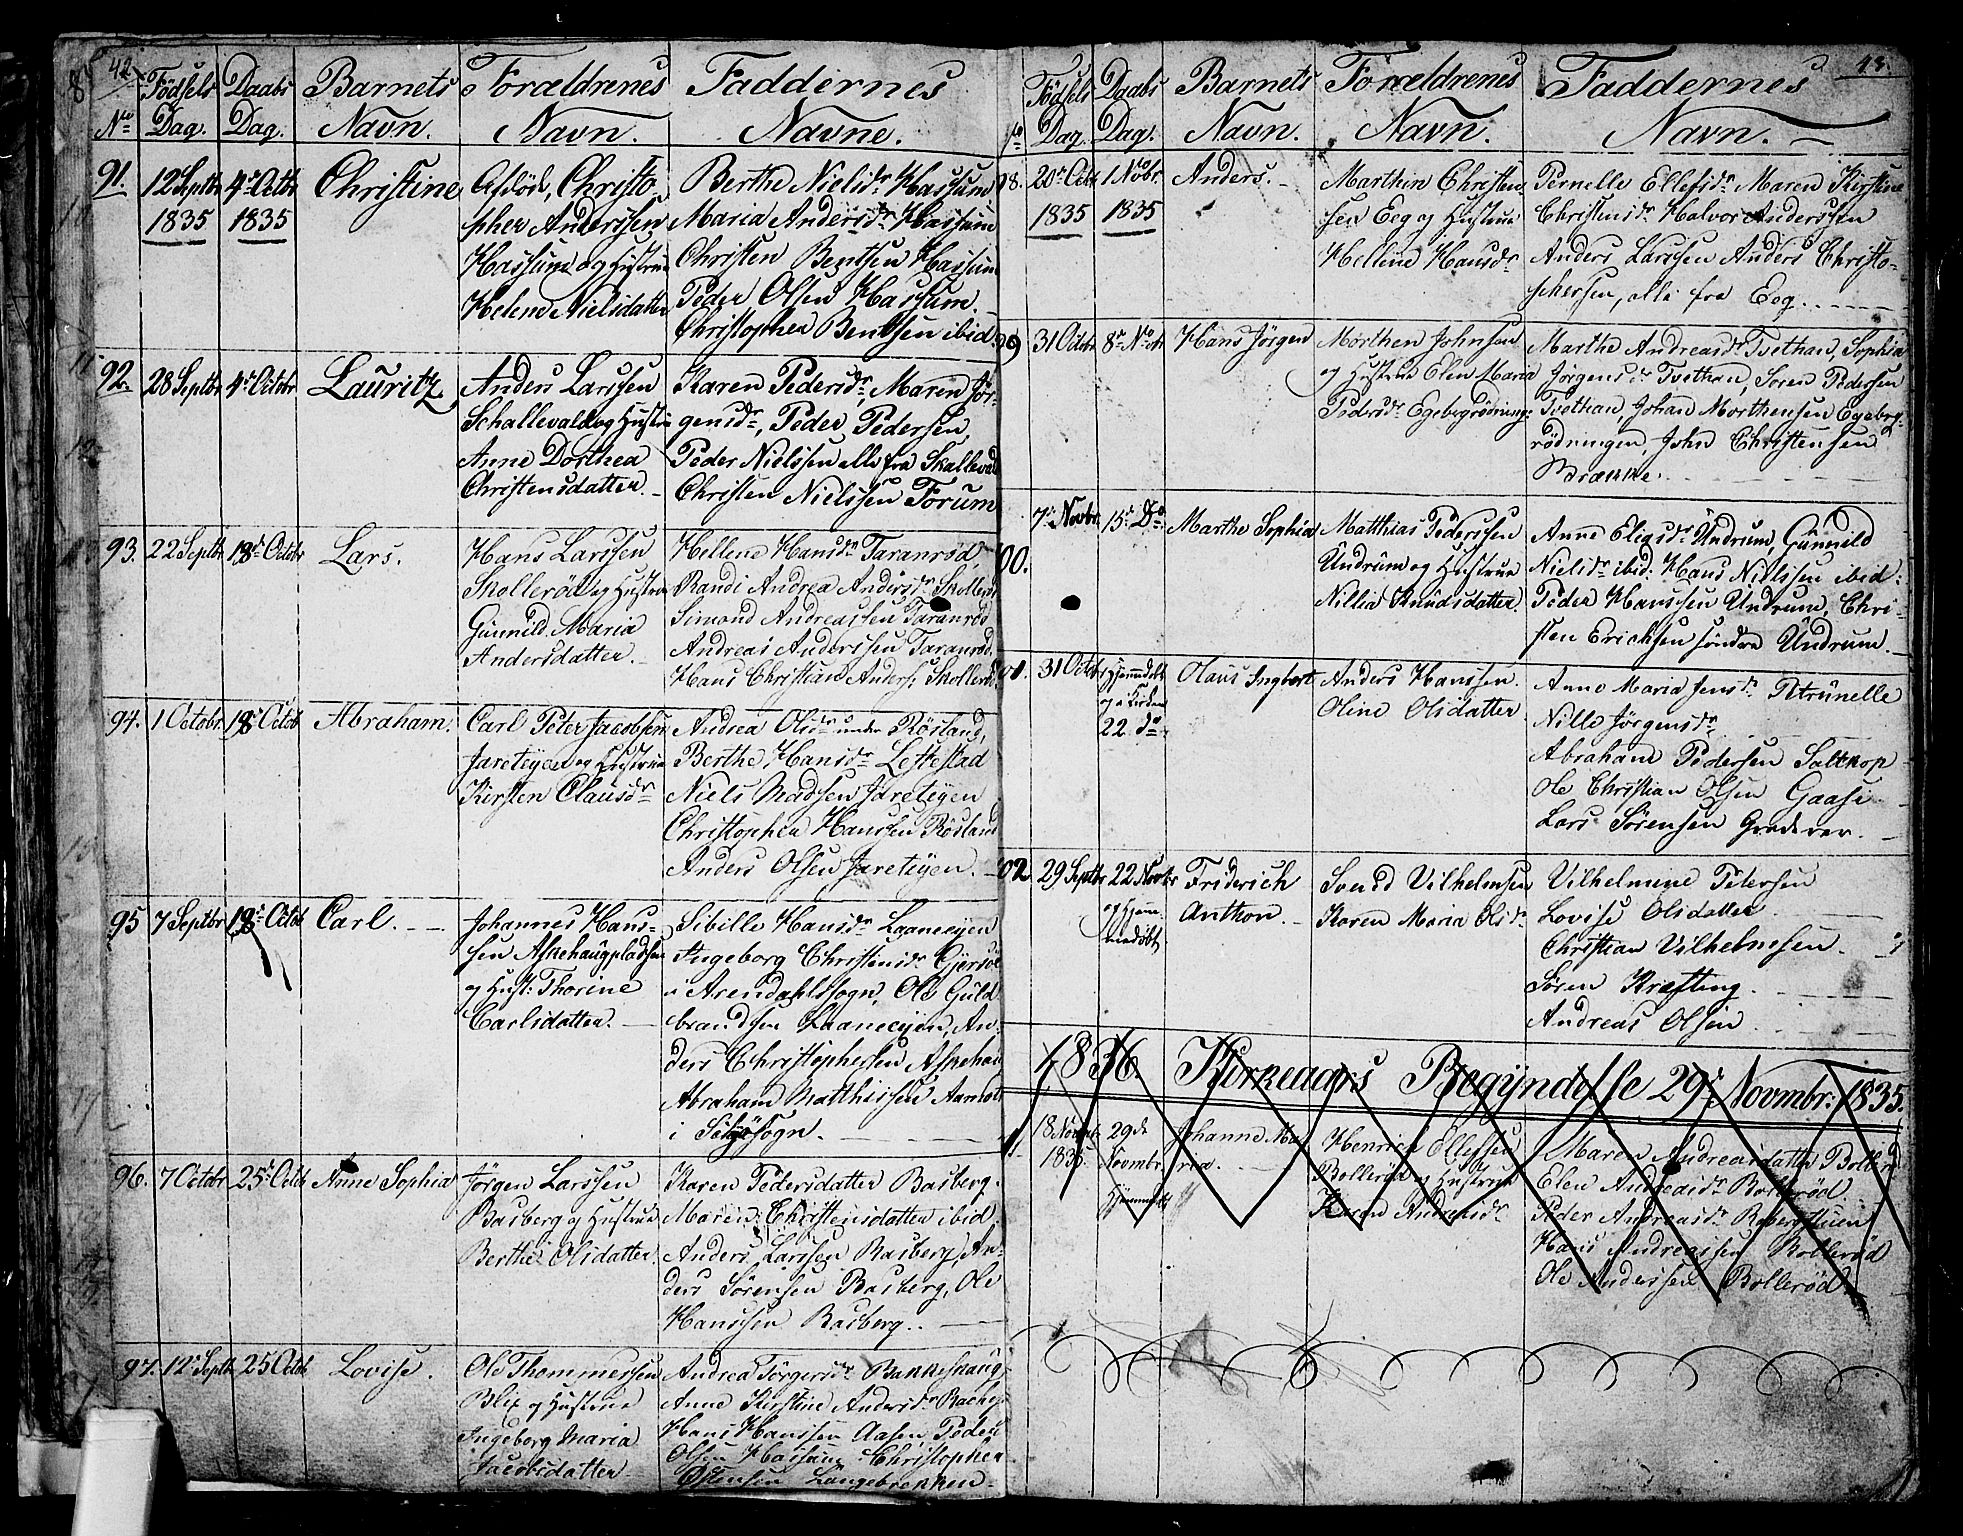 42
No
Fødsels Dag.
Daabs Dag.
Barnets Navn.
Forældrenes Navn.
Faddernes Navne.
91.
12 Septbr 1835
4de Octbr 1835
Christine
Afdöd, Christo
pher Anderssen
Hassum og Hustrue
Helene Nielsdatter
Berthe Nielsdr Hassum
Maria Andersdr Hassum
Christen Bentsen Hassum
Peder Olsen Hassum
Christopher Bentsen ibid:
92.
28 Septbr
4de Octobr
Lauritz
Anders Larssen
Schallevald og Hustru
Anne Dorthea
Christensdatter.
Karen Pedersdr, Maren Jör-
gensdr, Peder Pedersen
Peder Nielssen alle fra Skallevald
Christen Nielssen Forum
93.
22 Septbr
18de Octobr
Lars.
Hans Larssen
Skolleröd og Hustrue
Gunnild Maria
Andersdatter.
Hellene Hansdr Taranröd,
Randi Andrea Andersdr Skolleröd
Simond Andreassen Taranröd
Andreas Anderssen Taranröd.
Hans Christian Anders: Skolleröd
94.
1 Octobr.
18de Octob
Abraham.
Carl Peter Jacobsen
Jareteyen og Hustrue
Kirsten Clausdr
Andrea Olsdr under Rösland,
Berthe Hansdr Leftestad
Niels Madsen Jareteyen
Christopher Hanssen Rösland
Anders Olsen Jareteyen.
95
7 Septbr
18de Octob
Carl.
Johannes Hans-
sen Askehaugpladsen
og Hust: Thorine
Carlsdatter.
Sibille Hansdr Laaneeyen
Ingeborg Christensdr
Arendahlssogn, Ole Guld
brandsen Laaneeyen, An-
ders Christophersen Askehau
Abraham Matthissen
i sogn.
96.
7 Octobr
25de Octob
Anne Sophia
Jörgen Larssen
Basberg og Hustrue
Berthe Olsdatter.
Karen Pedersdatter Basberg.
Maren Christensdatter ibid.
Anders Larssen Basberg, An-
ders Sörensen Basberg, Ole
Hanssen Basberg.
97.
12te Septbr
25 Octob
Lovise.
Ole Thommessen
Blix og Hustrue
Ingeborg Maria
Jacobsdatter
Andrea Törgersdr Bakkeshaug
Anne Kirstine Andersdr
Hans Hanssen Aasen Peder
Olsen Hassum Christopher
Ostensen Langebrekken
43.
Fødsels Dag.
Daabs Dag.
Barnets Navn.
Forældrenes Navn.
Faddernes Navn.
98.
20de Octb 1835
1 Nobr. 1835
Anders.
Marthin Christen-
sen Eeg og Hustrue
Hellene Hansdr
Pernelle Ellefsdr Maren Kirstine
Christensdr Halvor Anderssen
Anders Larssen Anders Christo-
phersen, alle fra Eeg.
99
31 Octobr
8de
Hans Jörgen
Morthen Johnsen
og Hustrue Elen Maria
Pedersdr Egebergrödning:
Marthe Andreasdr Tvethan, Sophia
Jörgensdr Tvethan, Soren Pedersen
Tvethan, Johan Morthensen Egeberg-
rödningen, John Christensen
Brække.
00.
7de Novbr.
15de Do
Marthe Sophia
Matthias Pederssen
Undrum og Hustrue
Nillia Knudsdatter.
Anne Eligsdr Undrum, Gunnild
Nielsdr ibid: Hans Nielssen ibid:
Peder Hanssen Undrum, Chri-
sten Erichsen söndre Undrum.
01.
31 Octobr
Hjemmedöbt
og i Kirken
22 do
Olaus Ingbert
Anders Hanssen.
Oline Olsdatter
Anne Maria Jensdr Petrunelle
Nille Jörgensdr
Abraham Pedersen Saltkop
Ole Christian Olsen Gaase.
Lars Sörensen Graderer.
02
29 Septbr
22 Novbr
og hjem-
medöbt
Friderich
Anthon.
Svend Vilhelmsen
Karen Maria Olsdr
Vilhelmine Petersen
Lovise Olsdatter
Christian Vilhelmsen.
Sören Kræfting.
Andreas Olsen
1836. Kirkeaars Begyndelse 29de Novmbr: 1835.
1,
18 Novmbr 1835
29de Novmbr.
Hjemmedöbt
Johanne Ma
ria.
Henrich Ellefsen
Bolleröd og Hustrue
Karen Andreasdr
Maren Andreasdatter Bolleröd
Elen Andreasdr Bolleröd
Peder Andreasdr Robergstuen
Hans Andreassen Bolleröd
Ole Anderssen Bolleröd